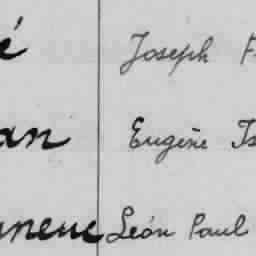 é Joseph F
an Eugène Is
uneuc Léon Paul